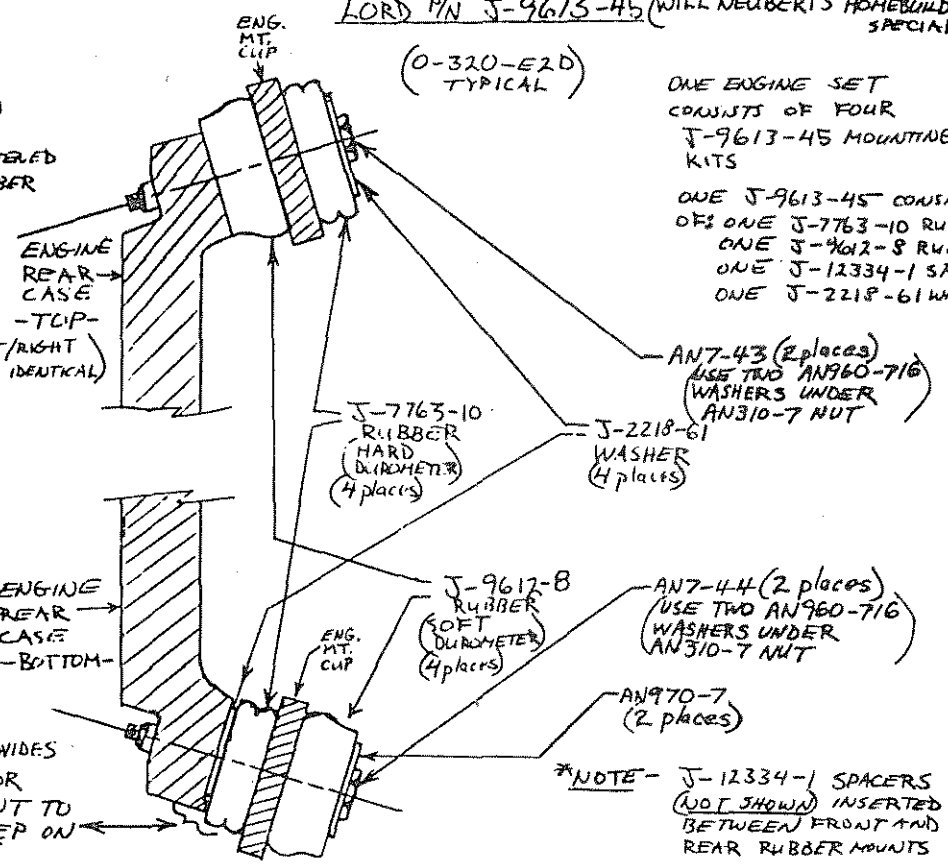 LORD P/N J-9613-45 (WILL NEUBERT'S HOMEBUILD
SPECIAL
(O-320-E2D)
TYPICAL
ENG.
MT.
CUP
ONE ENGINE SET
CONSISTS OF FOUR
J-9613-45 MOUNTING
KITS
ONE J-9613-45 CONS
OF: ONE J-7763-10 RU
ONE J-9612-8 RU
ONE J-12334-1 SP
ONE J-2218-61 WA
ENGINE
REAR
CASE
-TOP-
T/RIGHT
IDENTICAL)
AN7-43 (2 places)
(USE TWO AN960-716
WASHERS UNDER
AN310-7 NUT)
J-7763-10
RUBBER
(HARD
DUROMETER)
(4 places)
J-2218-61
WASHER
(4 places)
ENGINE
REAR
CASE
-BOTTOM-
J-9612-8
RUBBER
(SOFT
DUROMETER)
(4 places)
ENG.
MT.
CUP
AN7-44 (2 places)
(USE TWO AN960-716
WASHERS UNDER
AN310-7 NUT)
AN970-7
(2 places)
VIDES
OR
NT TO
EP ON
*NOTE - J-12334-1 SPACERS
(NOT SHOWN) INSERTED
BETWEEN FRONT AND
REAR RUBBER MOUNTS